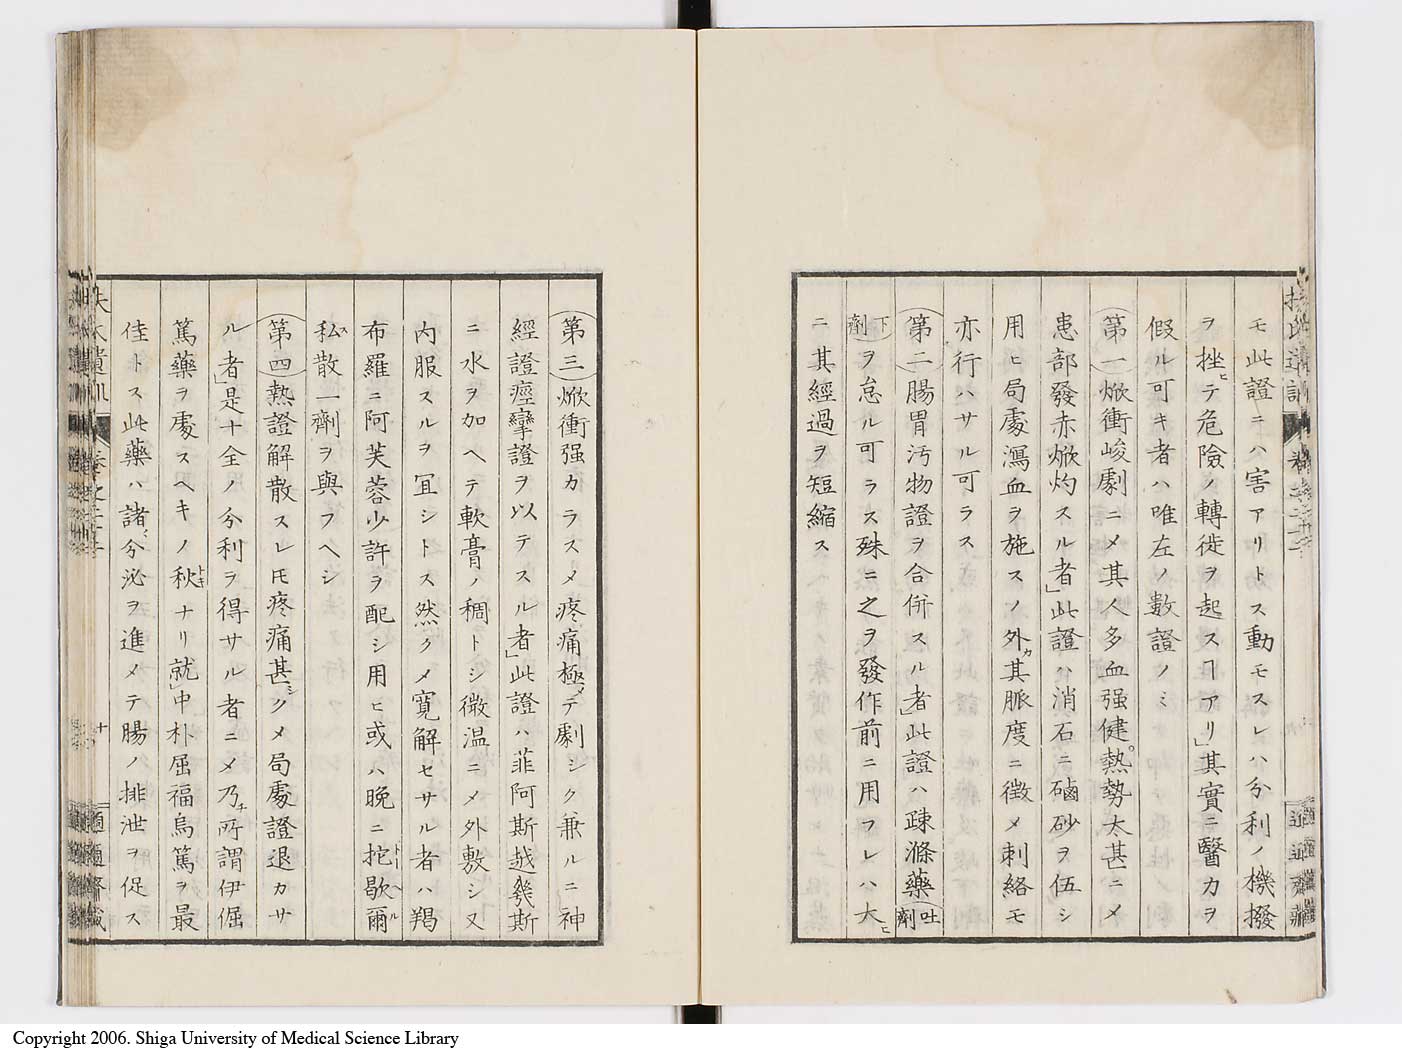 モ此證ニハ害アリトス動モスレハ分利ノ機撥
ヲ挫ヒテ危險ノ轉徙ヲ起スヿアリ」其實ニ醫カヲ
假ル可キ者ハ唯左ノ數證ノミ
第一焮衝峻劇ニメ其人多血强健熱勢太甚ニメ
患部發赤焮灼スル者」此證ハ消石ニ磠砂ヲ伍シ
用ヒ局處瀉血ヲ施スノ外カ其脈度ニ徴メ刺絡モ
亦行ハサル可ラス
第二腸胃汚物證ヲ合併スル者」此證ハ疎滌藥吐劑
下劑ヲ怠ル可ラス殊ニ之ヲ發作前ニ用フレハ大ヒ
ニ其經過ヲ短縮ス
第三焮衝强カラスメ疼痛極メテ劇シク兼ルニ神
經證痙攣證ヲ以テスル者」此證ハ菲阿斯越幾斯
ニ水ヲ加ヘテ軟膏ノ稠トシ微温ニメ外敷シ又
内服スルヲ冝シトス然クメ寛解セサル者ハ羯
布羅ニ阿芙蓉少許ヲ配シ用ヒ或ハ晩ニ抡歇爾
私散一劑ヲ與フヘシ
第四熱證解散スレ𪜈疼痛甚シクメ局處證退カサ
ル者」是十全ノ分利ヲ得サル者ニメ乃チ所謂伊倔
篤藥ヲ處スヘキノ秋ナリ就」中朴屈福烏篤ヲ最
佳トス此藥ハ諸分泌ヲ進メテ腸ノ排泄ヲ促ス
適適齋藏
Copyright 2006. Shiga University of Medical Science Library